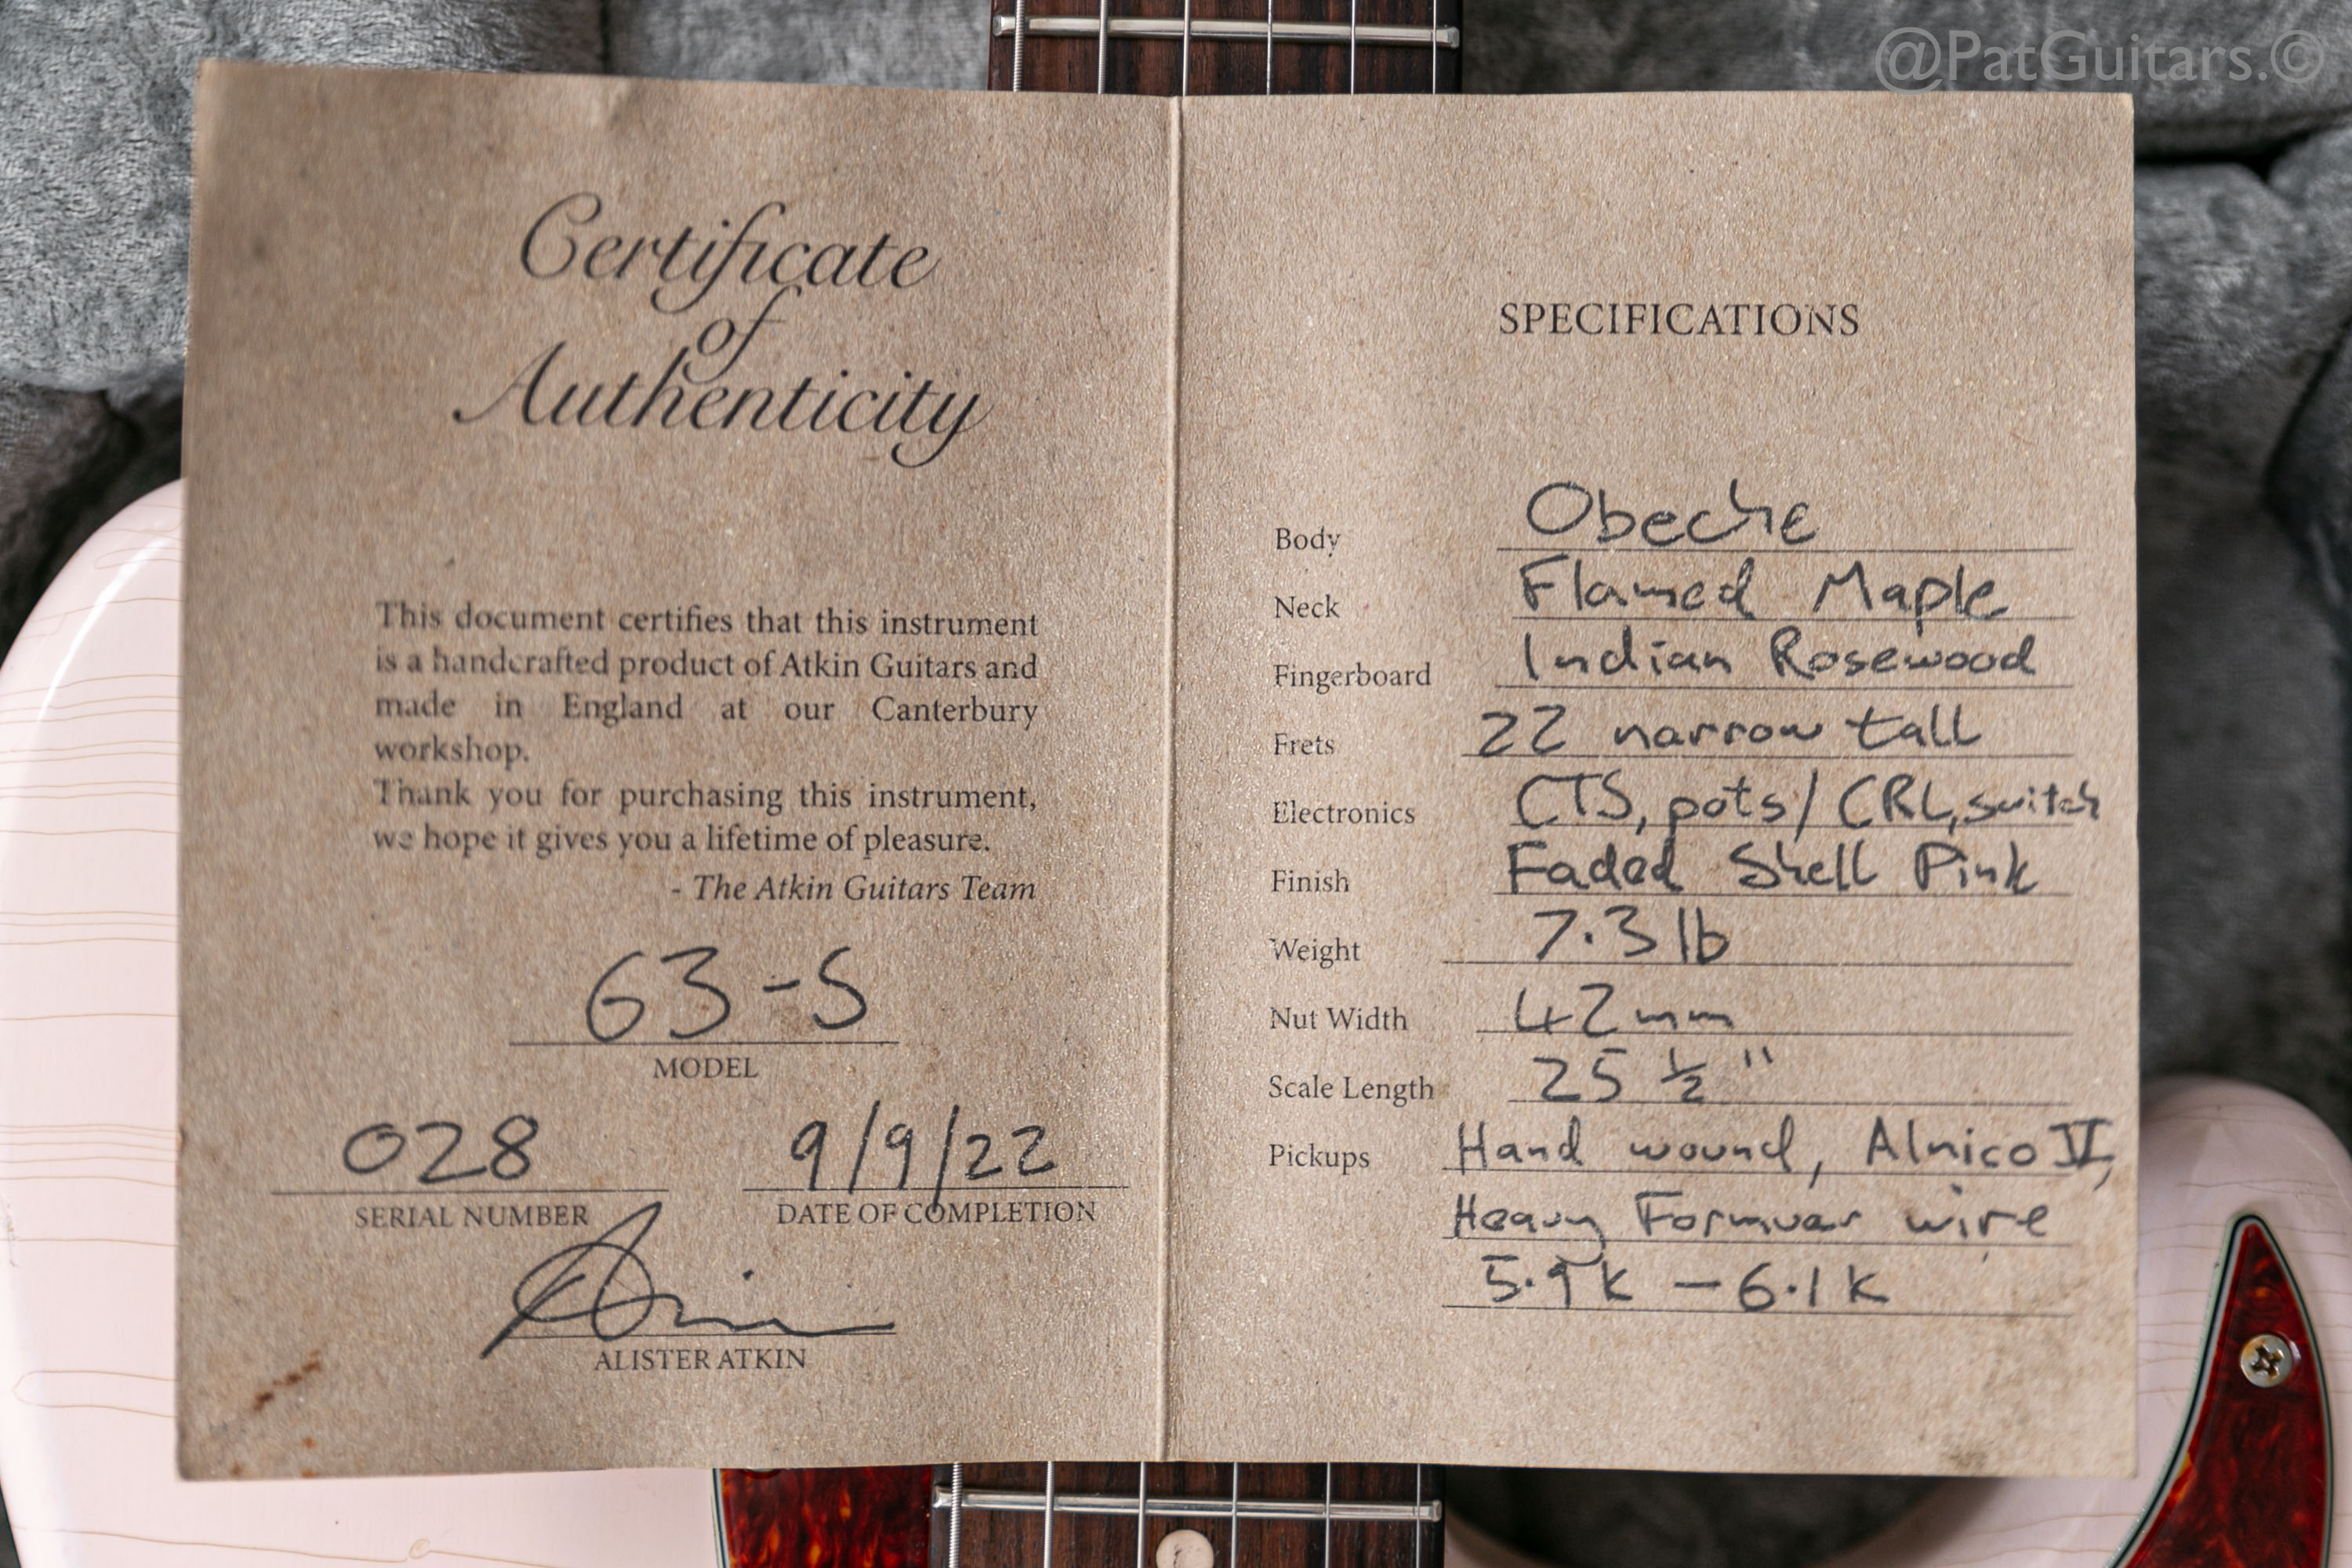 @PatGuitars.©
Certificate
of
Authenticity
This document certifies that this instrument
is a handcrafted product of Atkin Guitars and
made in England at our Canterbury
workshop.
Thank you for purchasing this instrument,
we hope it gives you a lifetime of pleasure.
- The Atkin Guitars Team
63-S
MODEL
028
SERIAL NUMBER
9/9/22
DATE OF COMPLETION
ALISTER ATKIN
SPECIFICATIONS
Body Obeche
Neck Flamed Maple
Fingerboard Indian Rosewood
Frets 22 narrow tall
Electronics CTS, pots/ CRL, switch
Finish Faded Shell Pink
Weight 7.3 lb
Nut Width 42mm
Scale Length 25 ½"
Pickups Hand wound, Alnico V,
Heavy Formvar wire
5.9k - 6.1k